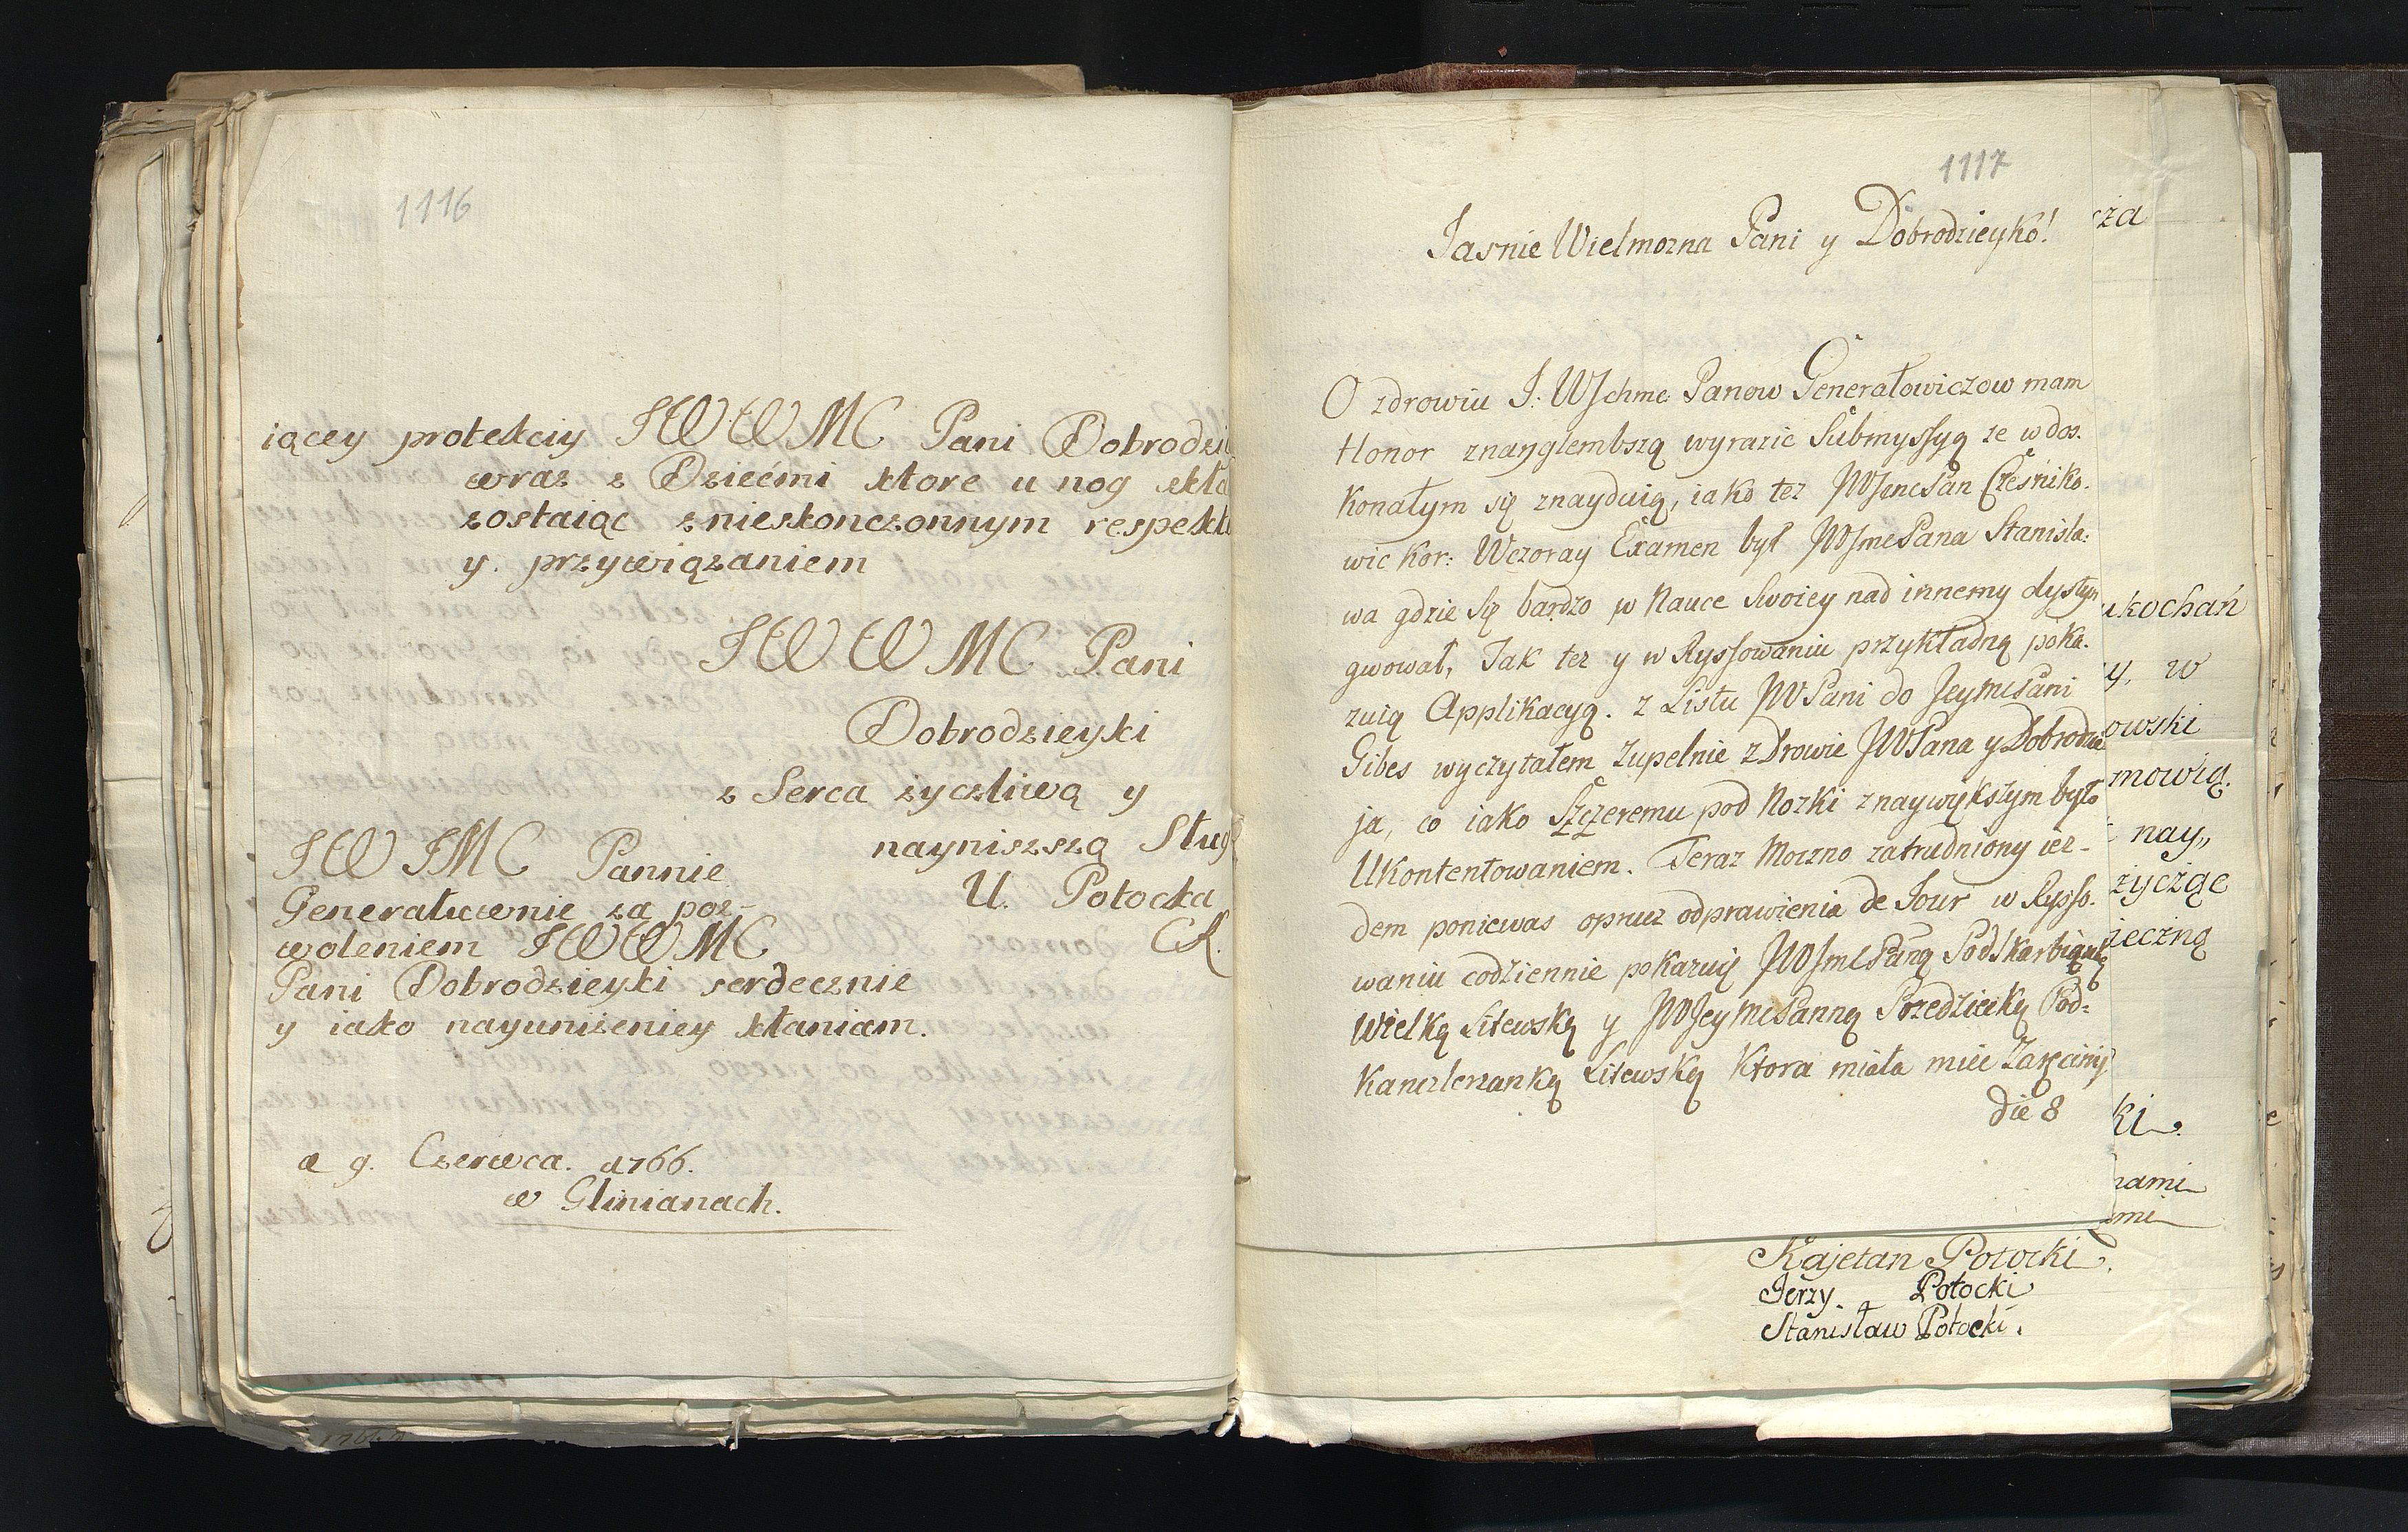 1116
iącey protekciy JWWMC Pani Dobrodzi
wraz z Dziećmi ktore u nog skła
zostaiąc znieskonczonnym respekt
y. przywiązaniem
JWWMC Pani
Dobrodzieyki
z Serca zyczliwą y
nayniszszą Sług
U. Potocka
CK.
JWJMC Pannie
Generałuwnie za poz-
woleniem JWWMC
Pani Dobrodzieyki serdecznie
y iako nayunizeniey kłaniam.
a 9. Czerwca. 1766.
w Glinianach.
1117
Jasnie Wielmozna Pani y Dobrodzieyko!
O zdrowiu J: WJchmc Panow Generałowiczow mam
Honor znanglembszą wyrazic Submyssyą ze w dos.
konałym się znayduią, iako tez JWJmcPan Cześniko.
wic Kor: Wczoray Examen był JWJmcPana Stanisla:
wa gdzie Się bardzo w Nauce Swoiey nad innemy dystyn
gwował, Tak tez y w Ryssowaniu przykładną poka.
zuią Applikacyą. z Listu JWPani do JeymcPani
Gibes wyczytałem Zupelnie zDrowie JWPana y Dobrodzie
ja, co iako Szczeremu pod Nozki znaywyksłym było
Ukontentowaniem. Teraz Moczno zatrudniony iez-
dem poniewas oprucz odprawienia de Jour w Rysso.
waniu codziennie pokazuię JWJmcPaną Podskarbiąnkę
Wielką Litewską y JWJeymcPannę Przedziecką Pod:
Kanclerzanką Litewską Ktora miała miec Zaręciny
die 8
za
ukochań
y, w
owski
mowią.
nay„
zyczące
ieczną
ki.
nami
mi
Kajetan Potocki.
Jerzy. Potocki
Stanisław Potocki.